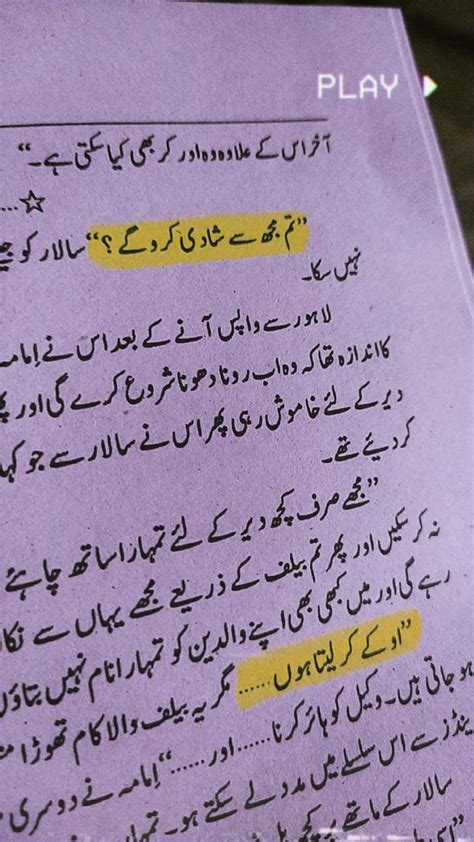 PLAY
آخر اس کے علاوہ وہ اور کر بھی کیا سکتی ہے۔“
☆....
”تم مجھ سے شادی کرو گے؟“ سالار کو جیسے
نہیں سکا۔
لاہور سے واپس آنے کے بعد اس نے امامہ
کا اندازہ تھا کہ وہ اب رونا دھونا شروع کرے گی اور پھر
دیر کے لئے خاموش رہی پھر اس نے سالار سے جو کہا
کر دیئے تھے۔
”مجھے صرف کچھ دیر کے لئے تمہارا ساتھ چاہئے
نہ کر سکیں اور پھر تم بیلف کے ذریعے مجھے یہاں سے نکا
رہے گی اور میں کبھی بھی اپنے والدین کو تمہارا نام نہیں بتاؤں
”او کے کر لیتا ہوں...... مگر یہ بیلف والا کام تھوڑا
ہو جاتی ہیں۔ وکیل کو ہائر کرنا...... اور......“ امامہ نے دوسری
ینڈز سے اس سلسلے میں مدد لے سکتے ہو۔ تمہا
سالار کے ماتھے پر کچھ